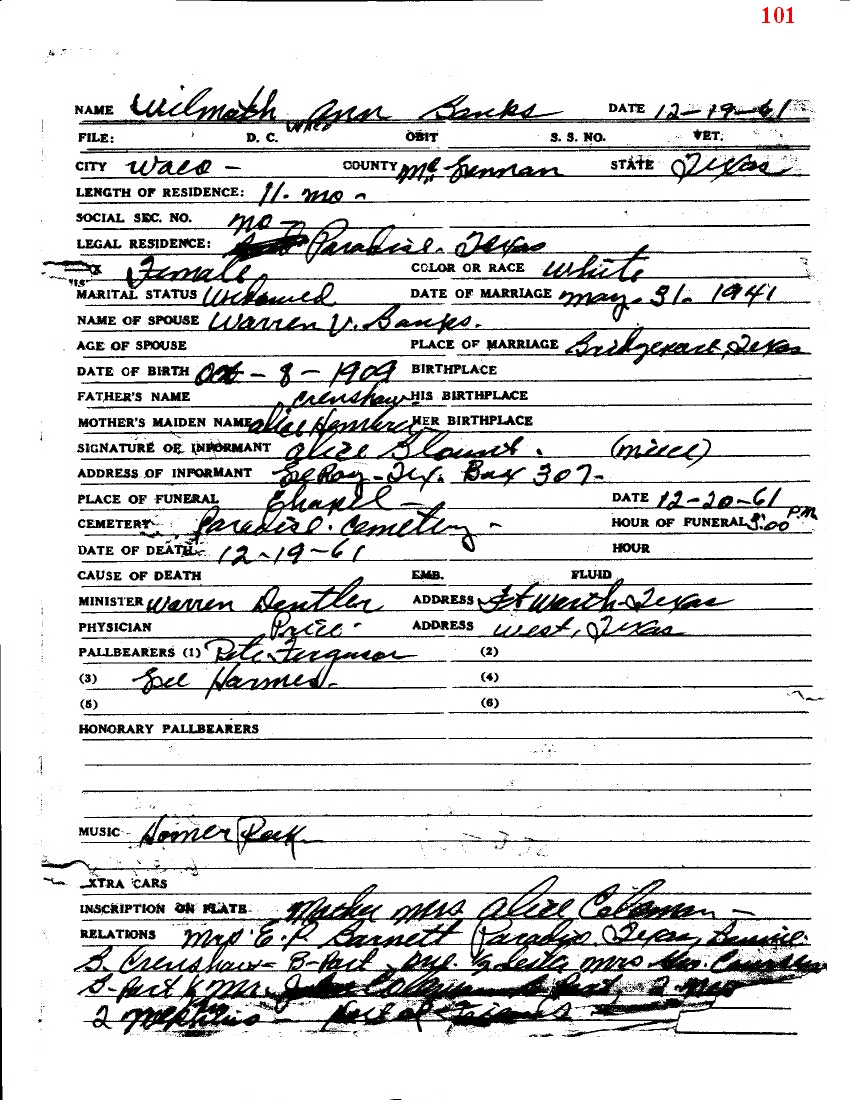 101
NAME Wilmath Ann Banks DATE 12-19-61
Waco
FILE: D. C. OBIT S. S. NO. VET.
CITY Waco - COUNTY Mc Lennan STATE Texas
LENGTH OF RESIDENCE: 11. mo -
SOCIAL SEC. NO. no -
LEGAL RESIDENCE: Paradise. Texas
Female COLOR OR RACE White
MARITAL STATUS Widowed DATE OF MARRIAGE May. 31. 1941
NAME OF SPOUSE Warren V. Banks.
AGE OF SPOUSE PLACE OF MARRIAGE Bridgeport, Texas
DATE OF BIRTH Oct - 8 - 1909 BIRTHPLACE
FATHER'S NAME Crenshaw HIS BIRTHPLACE
MOTHER'S MAIDEN NAME Alice HER BIRTHPLACE
SIGNATURE OF INFORMANT Alice Blount. (niece)
ADDRESS OF INFORMANT LeRoy - Tex. Box 307-
PLACE OF FUNERAL Chapel - DATE 12-20-61
CEMETERY Paradise. Cemetery - HOUR OF FUNERAL 3:00 PM
DATE OF DEATH 12-19-61 HOUR
CAUSE OF DEATH EMB. FLUID
MINISTER Warren Dentler ADDRESS Ft Worth-Texas
PHYSICIAN Price. ADDRESS West, Texas
PALLBEARERS (1) Pete Ferguson (2)
(3) Lee Harmes. (4)
(5) (6)
HONORARY PALLBEARERS
MUSIC Homer
EXTRA CARS
INSCRIPTION ON PLATE Mother Mrs Alice Coleman -
RELATIONS Mrs E. P. Barnett Paradise, Texas,
S. Crenshaw - B-Port. Mrs
B-Port Mr.
2